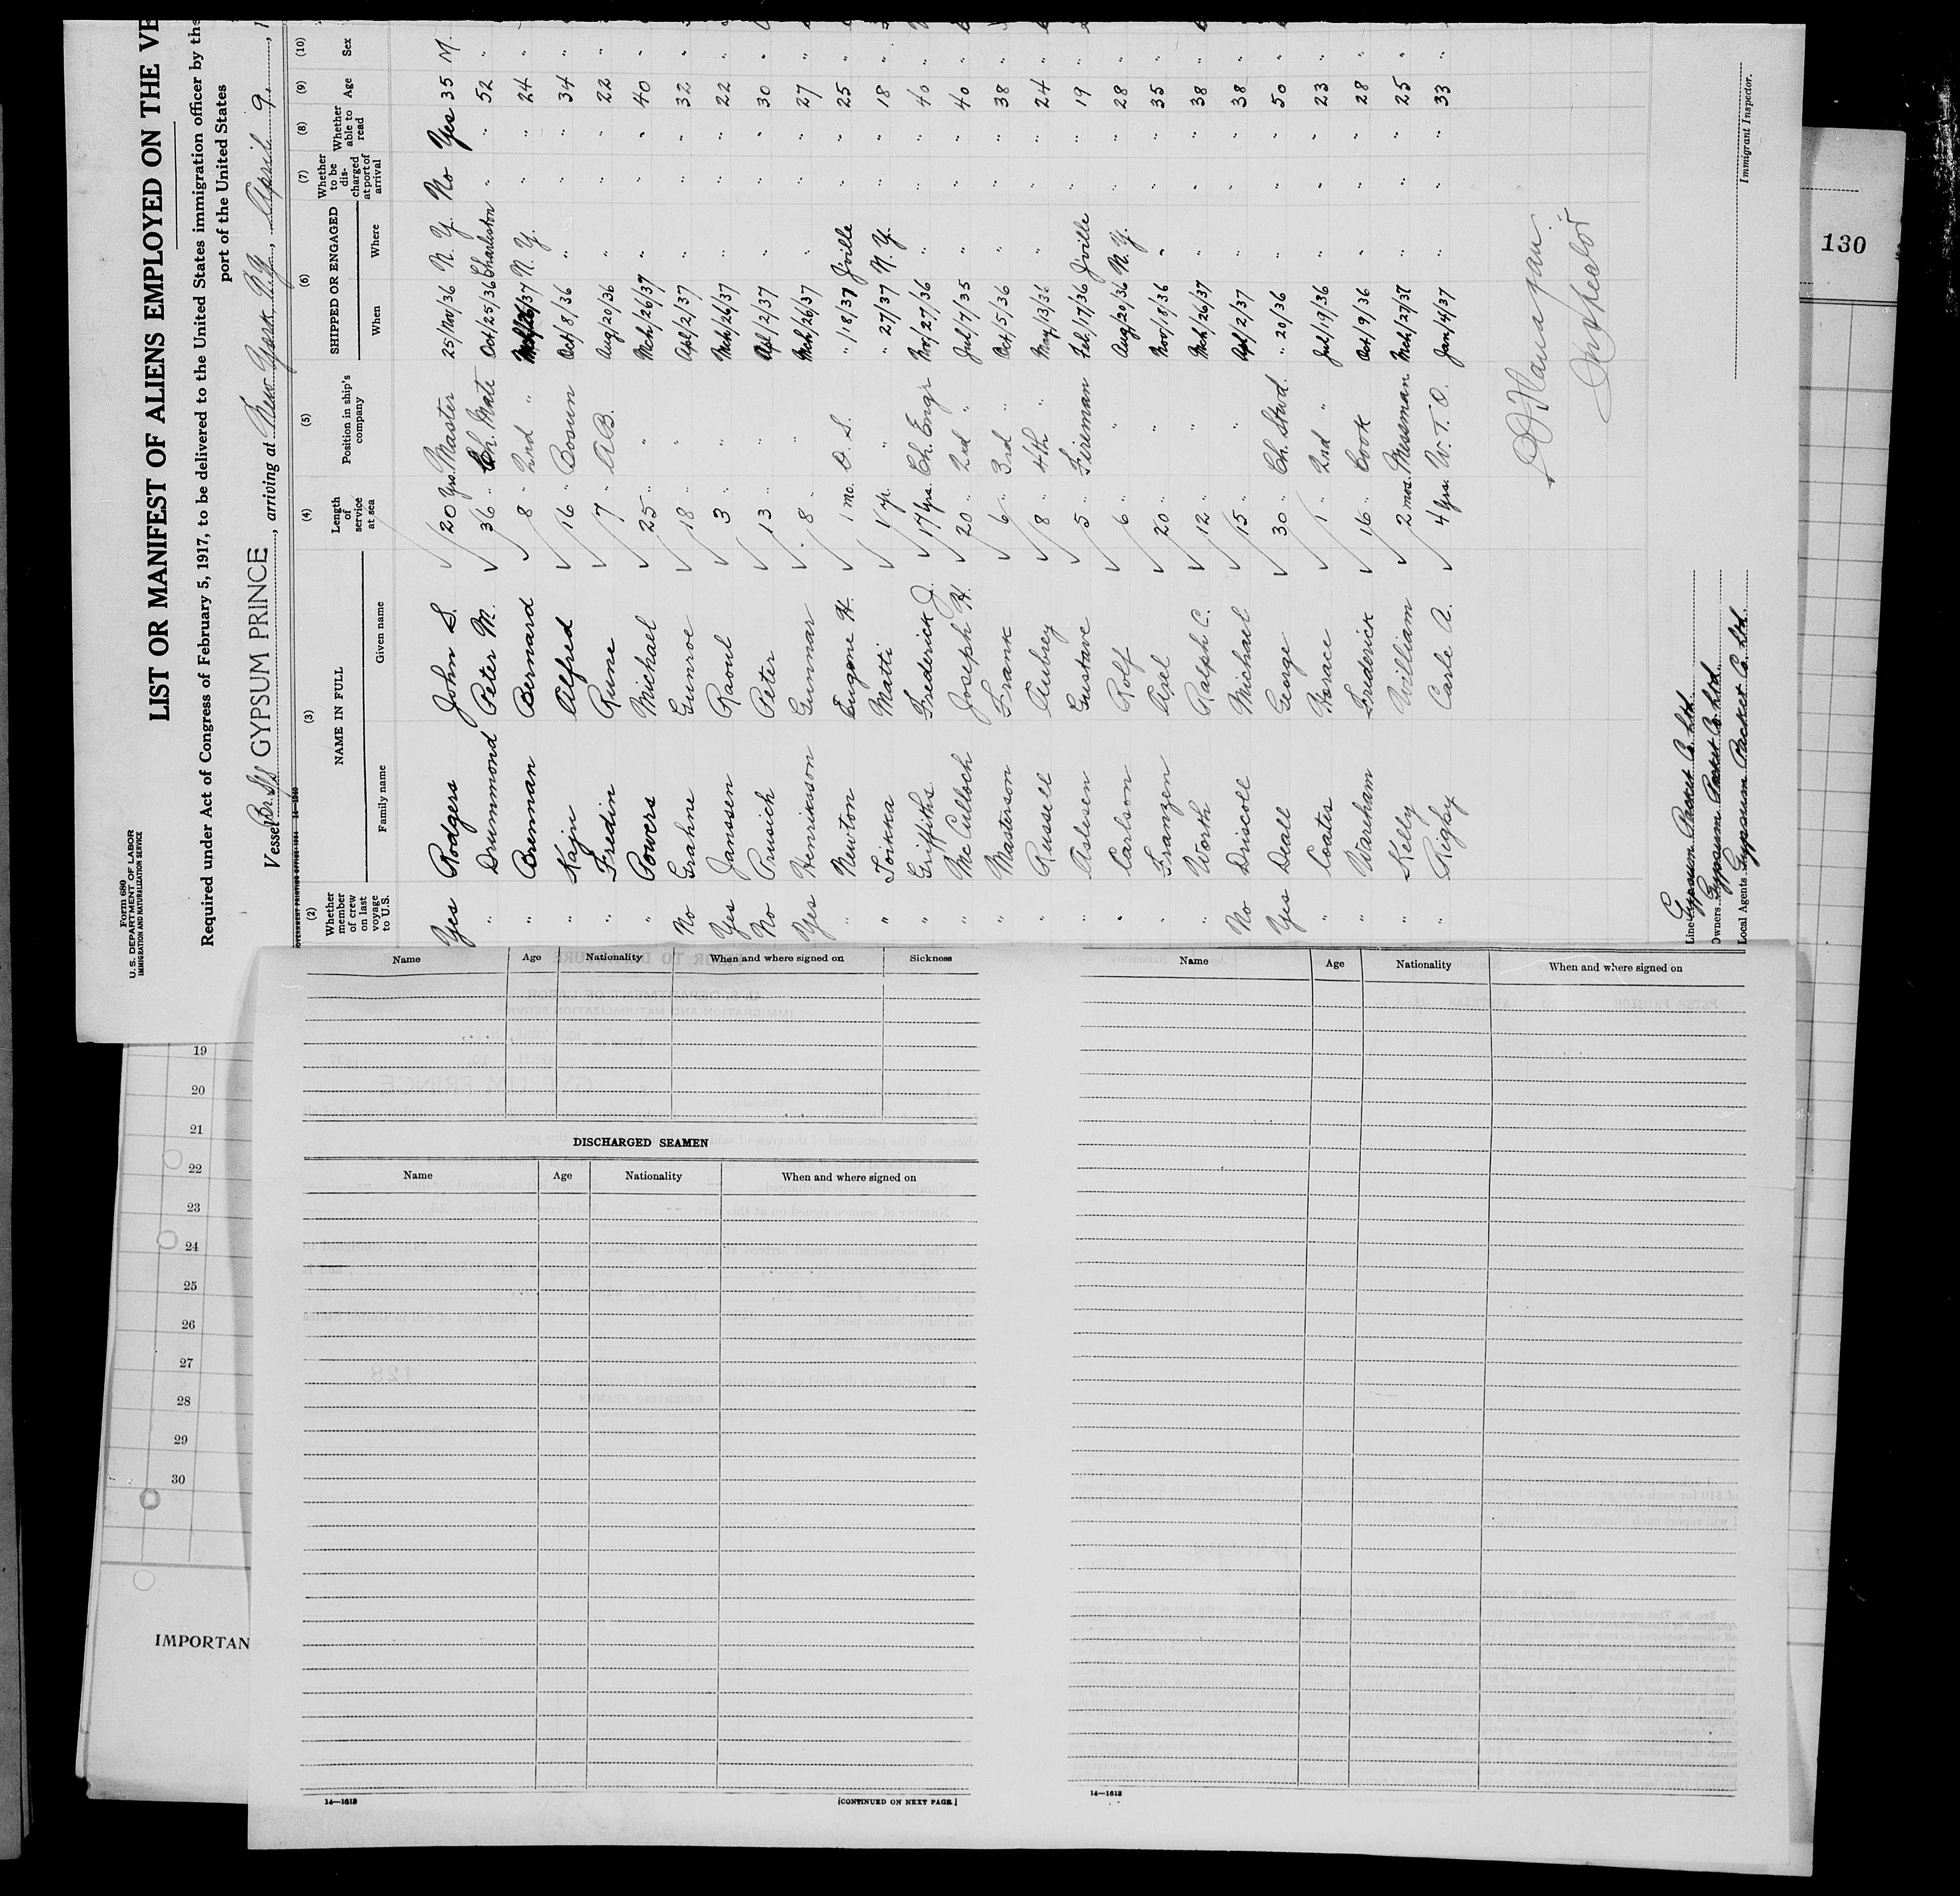 Form 680
U.S. DEPARTMENT OF LABOR
IMMIGRATION AND NATURALIZATION SERVICE
LIST OR MANIFEST OF ALIENS EMPLOYED ON THE VE
Required under Act of Congress of February 5, 1917, to be delivered to the United States immigration officer by the
port of the United States
Vessel Br. SS GYPSUM PRINCE, arriving at New York N.Y., April 9, 1
(2) Whether member of crew on last voyage to U.S. (3) NAME IN FULL Family name Given name (4) Length of service at sea (5) Position in ship's company (6) SHIPPED OR ENGAGED When Where (7) Whether to be discharged at port of arrival (8) Whether able to read (9) Age (10) Sex
Yes Rodgers John S. 20 yrs. Master 25/Nov/36 N.Y. No Yes 35 M.
" Drummond Peter M. 36 " Ch. Mate Oct/25/36 Charleston " " 52 "
" Brennan Bernard 8 " 2nd " Mch/26/37 N.Y. " " 24 "
" Kajn Alfred 16 " Bosun Oct/8/36 " " " 34 "
" Fredin Rune 7 " A.B. Aug/20/36 " " " 22 "
" Powers Michael 25 " " Mch/26/37 " " " 40 "
No Grahne Gunroe 18 " " Apl/2/37 " " " 32 "
Yes Janssen Raoul 3 " " Mch/26/37 " " " 22 "
No Prusich Peter 13 " " Apl/2/37 " " " 30 "
Yes Henriksson Gunnar 8 " " Mch/26/37 " " " 27 "
" Newton Eugene H. 1 mo. O.S. " /18/37 J'ville " " 25 "
" Toikka Matti 1 yr. " " 27/37 N.Y. " " 18 "
" Griffiths Frederick J. 17 yrs. Ch. Engr Nov/27/36 " " " 40 "
" McCulloch Joseph H. 20 " 2nd " Jul/7/35 " " " 40 "
" Masterson Frank 6 " 3rd " Oct/5/36 " " " 38 "
" Russell Aubrey 8 " 4th " May/13/36 " " " 24 "
" Aslesen Gustave 5 " Fireman Feb/17/36 J'ville " " 19 "
" Carlson Rolf 6 " " Aug/20/36 N.Y. " " 28 "
" Franzen Axel 20 " " Nov/18/36 " " " 35 "
" Worth Ralph C. 12 " " Mch/26/37 " " " 38 "
No Driscoll Michael 15 " " Apl/2/37 " " " 38 "
Yes Deall George 30 " Ch. Stwd. " 20/36 " " " 50 "
" Coates Horace 1 " 2nd " Jul/19/36 " " " 23 "
" Wareham Frederick 16 " Cook Oct/9/36 " " " 28 "
" Kelly William 2 mos. Messman Mch/27/37 " " " 25 "
" Rigby Carle A. 4 yrs. W.T.O. Jan/4/37 " " " 33 "
Inspector
Immigrant Inspector.
Line Gypsum Packet Co. Ltd.
Owners Gypsum Packet Co. Ltd.
Local Agents Gypsum Packet Co. Ltd.
130
Name Age Nationality When and where signed on Sickness
DISCHARGED SEAMEN
Name Age Nationality When and where signed on
14—1613 [CONTINUED ON NEXT PAGE]
Name Age Nationality When and where signed on
14—1613
19
20
21
22
23
24
25
26
27
28
29
30
IMPORTAN